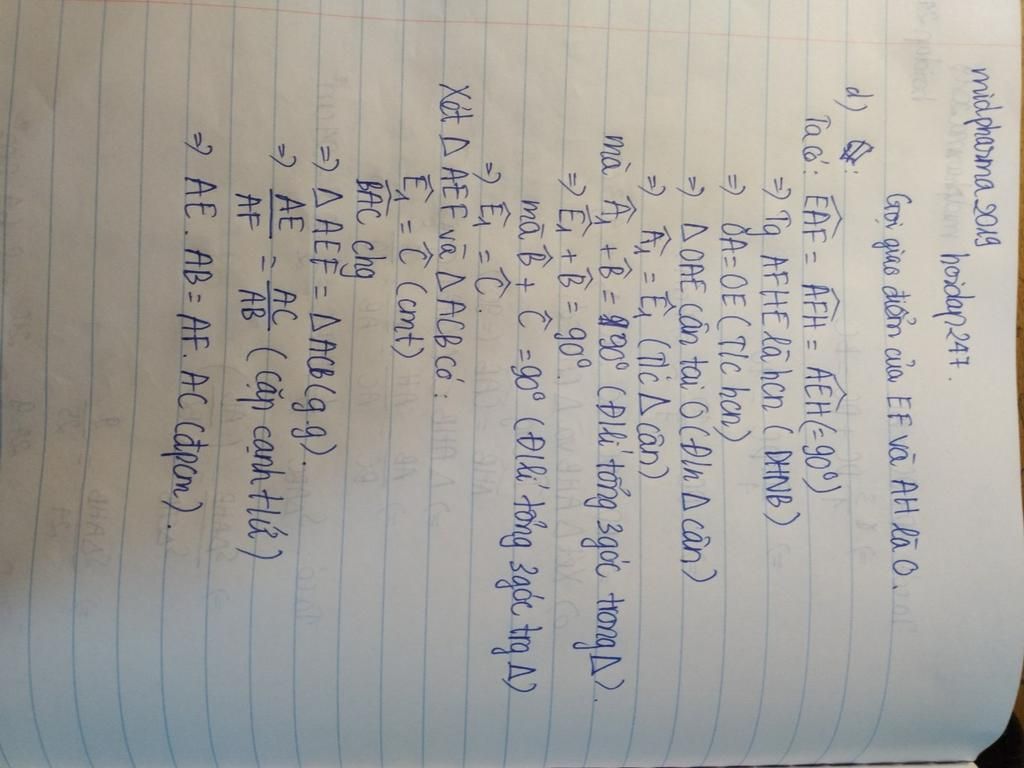 midpharma2019
hoidap247.
Gọi giao điểm của EF và AH là O.
d)
Ta có: EAF = AFH = AEH (=90°)
=> Tg AFHE là hcn (DHNB)
=> OA=OE (T/c hcn)
=> Δ OAE cân tại O (Đ/n Δ cân)
=> A1 = E1 (T/c Δ cân)
mà A1 + B = 90° (Đlí tổng 3 góc trong Δ).
=> E1 + B = 90°.
mà B + C = 90° (Đlí tổng 3 góc trg Δ)
=> E1 = C.
Xét Δ AEF và Δ ACB có:
E1 = C (cmt)
BAC chg
=> Δ AEF = Δ ACB (g.g).
=> AE/AF = AC/AB (cặp cạnh t/ứ)
=> AE. AB = AF. AC (đpcm).